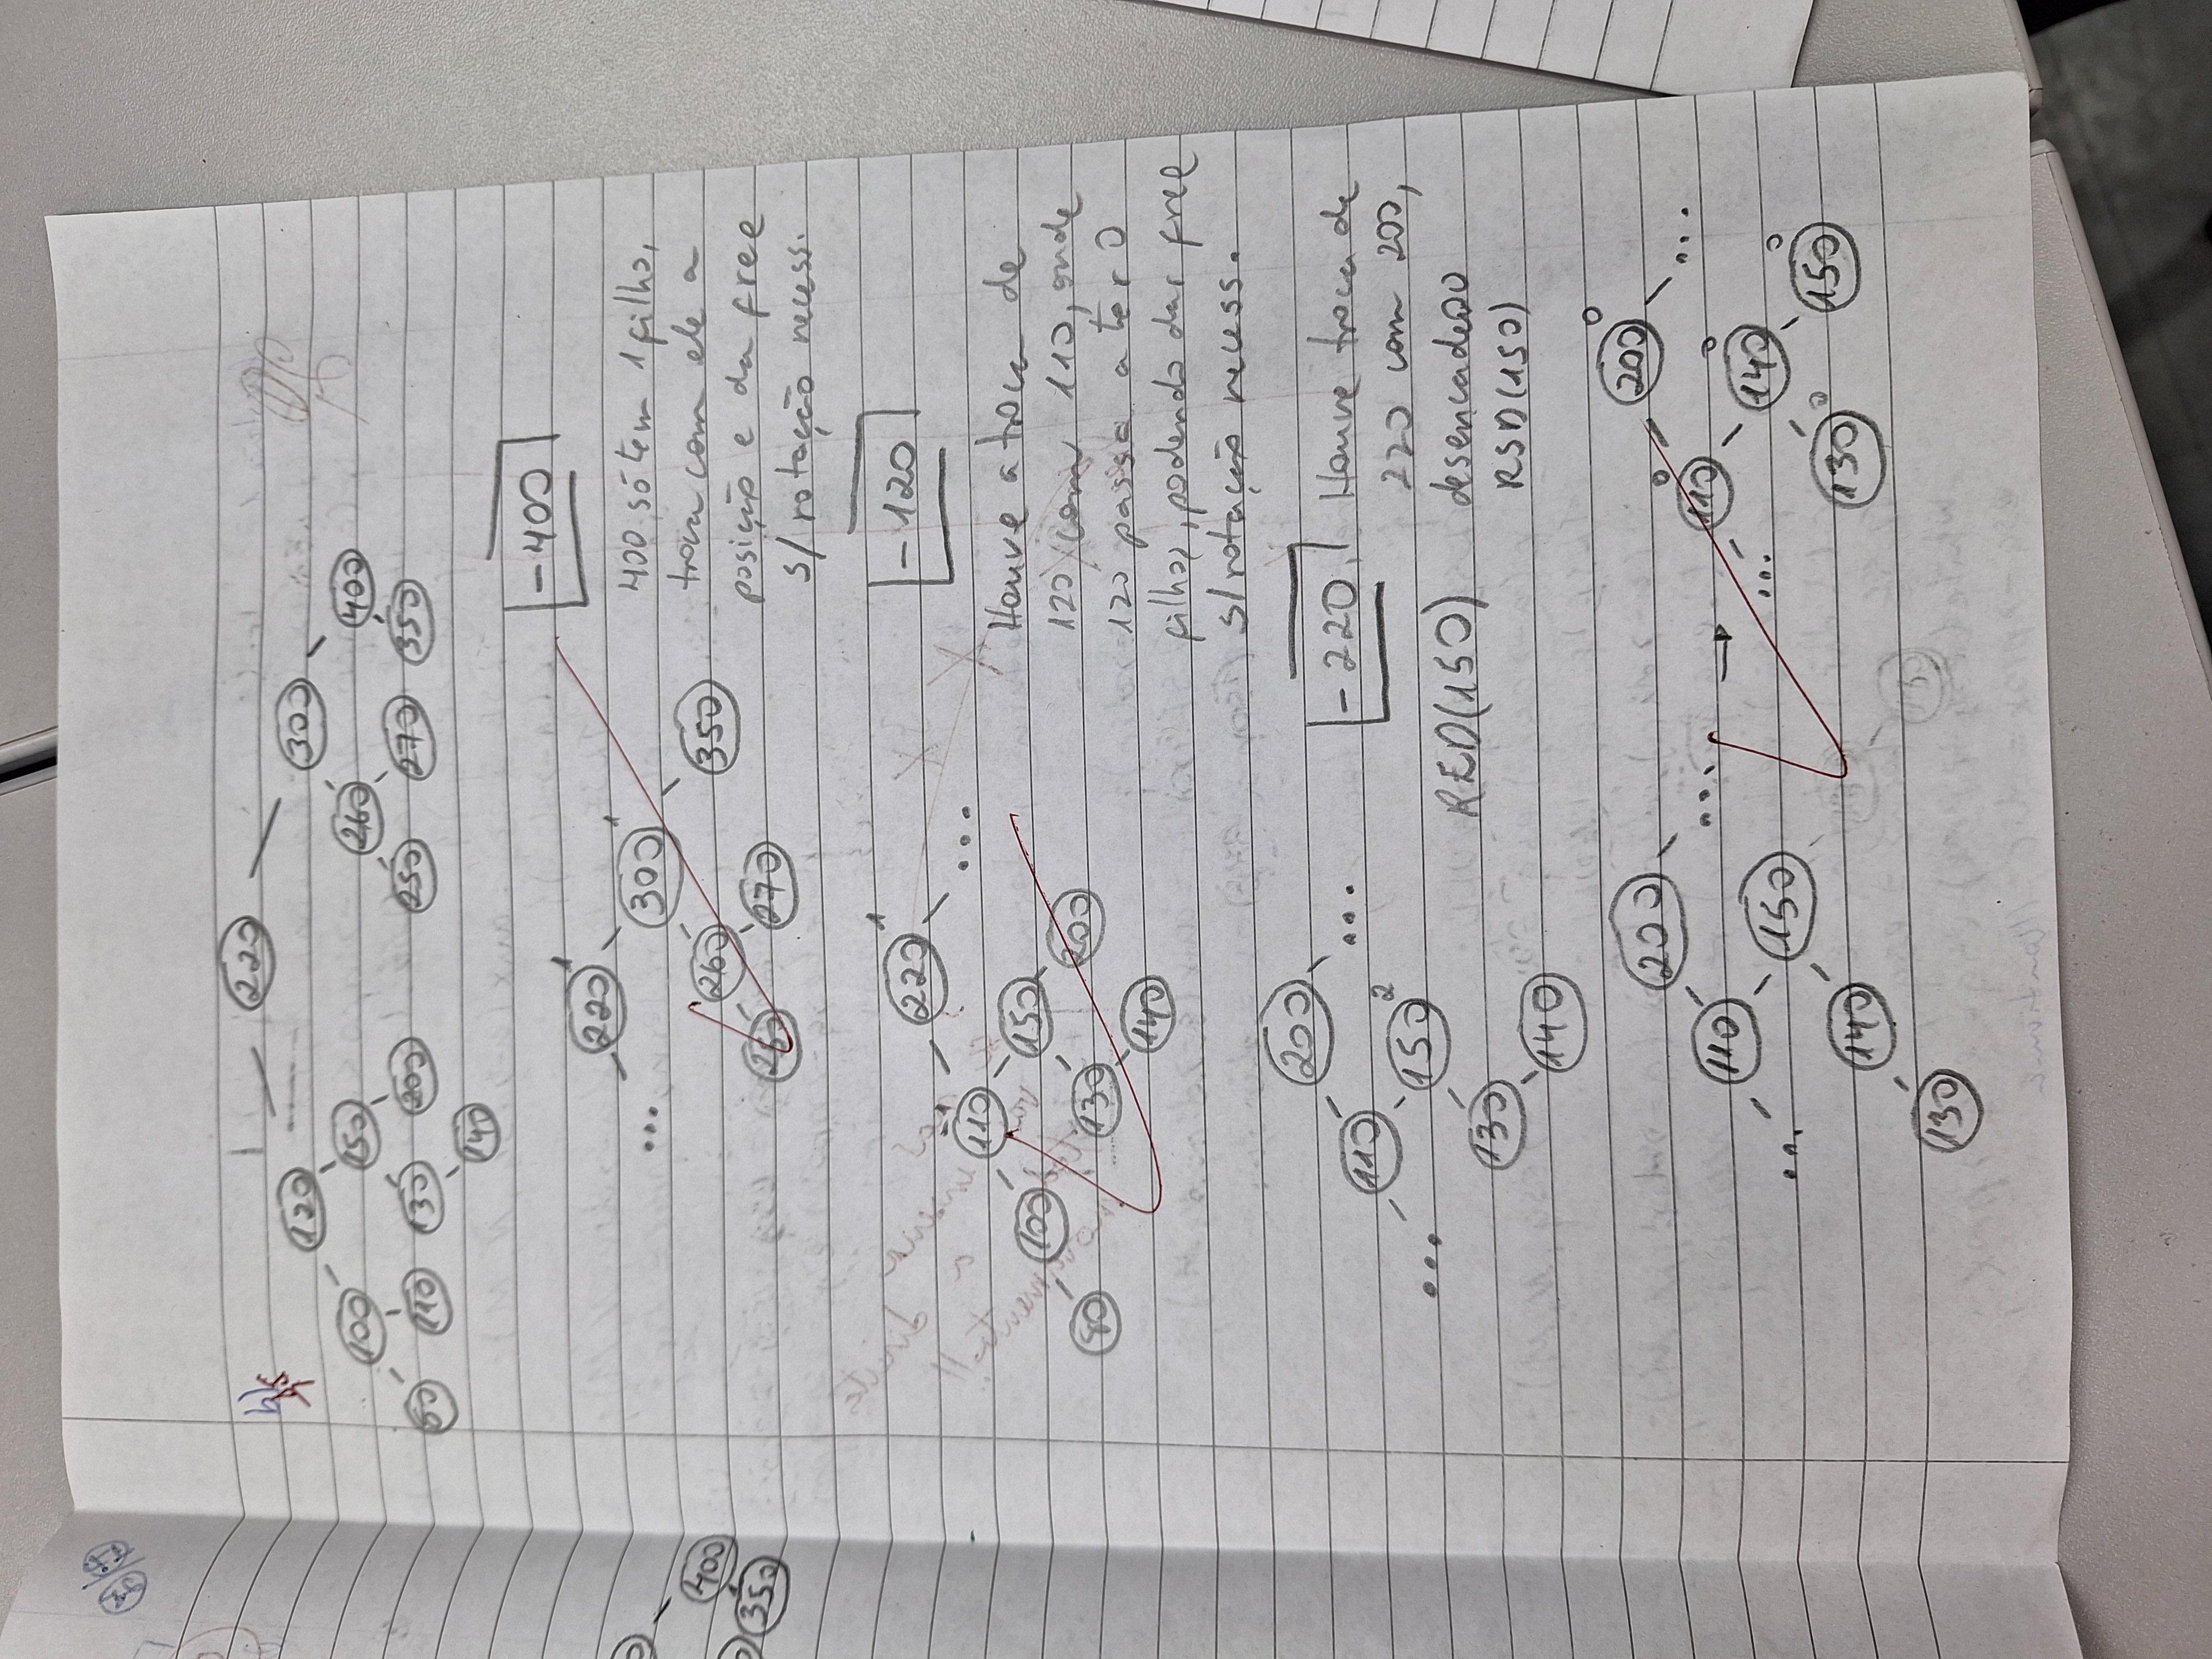 b)
220
120 300
100 150 260 400
80 110 130 200 250 270 350
140
-400
220 1
... 300 1
260 350
250 270
400 só tem 1 filho,
troca com ele a
posição e da free
s/ rotação necess.
-120
220 1
110 -1 ...
100 150
80 130 200
140
Houve a troca de
120 com 110, onde
120 passa a ter 0
filhos, podendo dar free
s/rotação necess.
-220
200
110 ...
... 150 2
130
140
RED(150)
Houve troca de
220 com 200,
desencadeou
RSD(150)
200
110 ...
... 150
140
130
→
200 0
110 0 ...
... 140 0
130 0 150 0
400
350